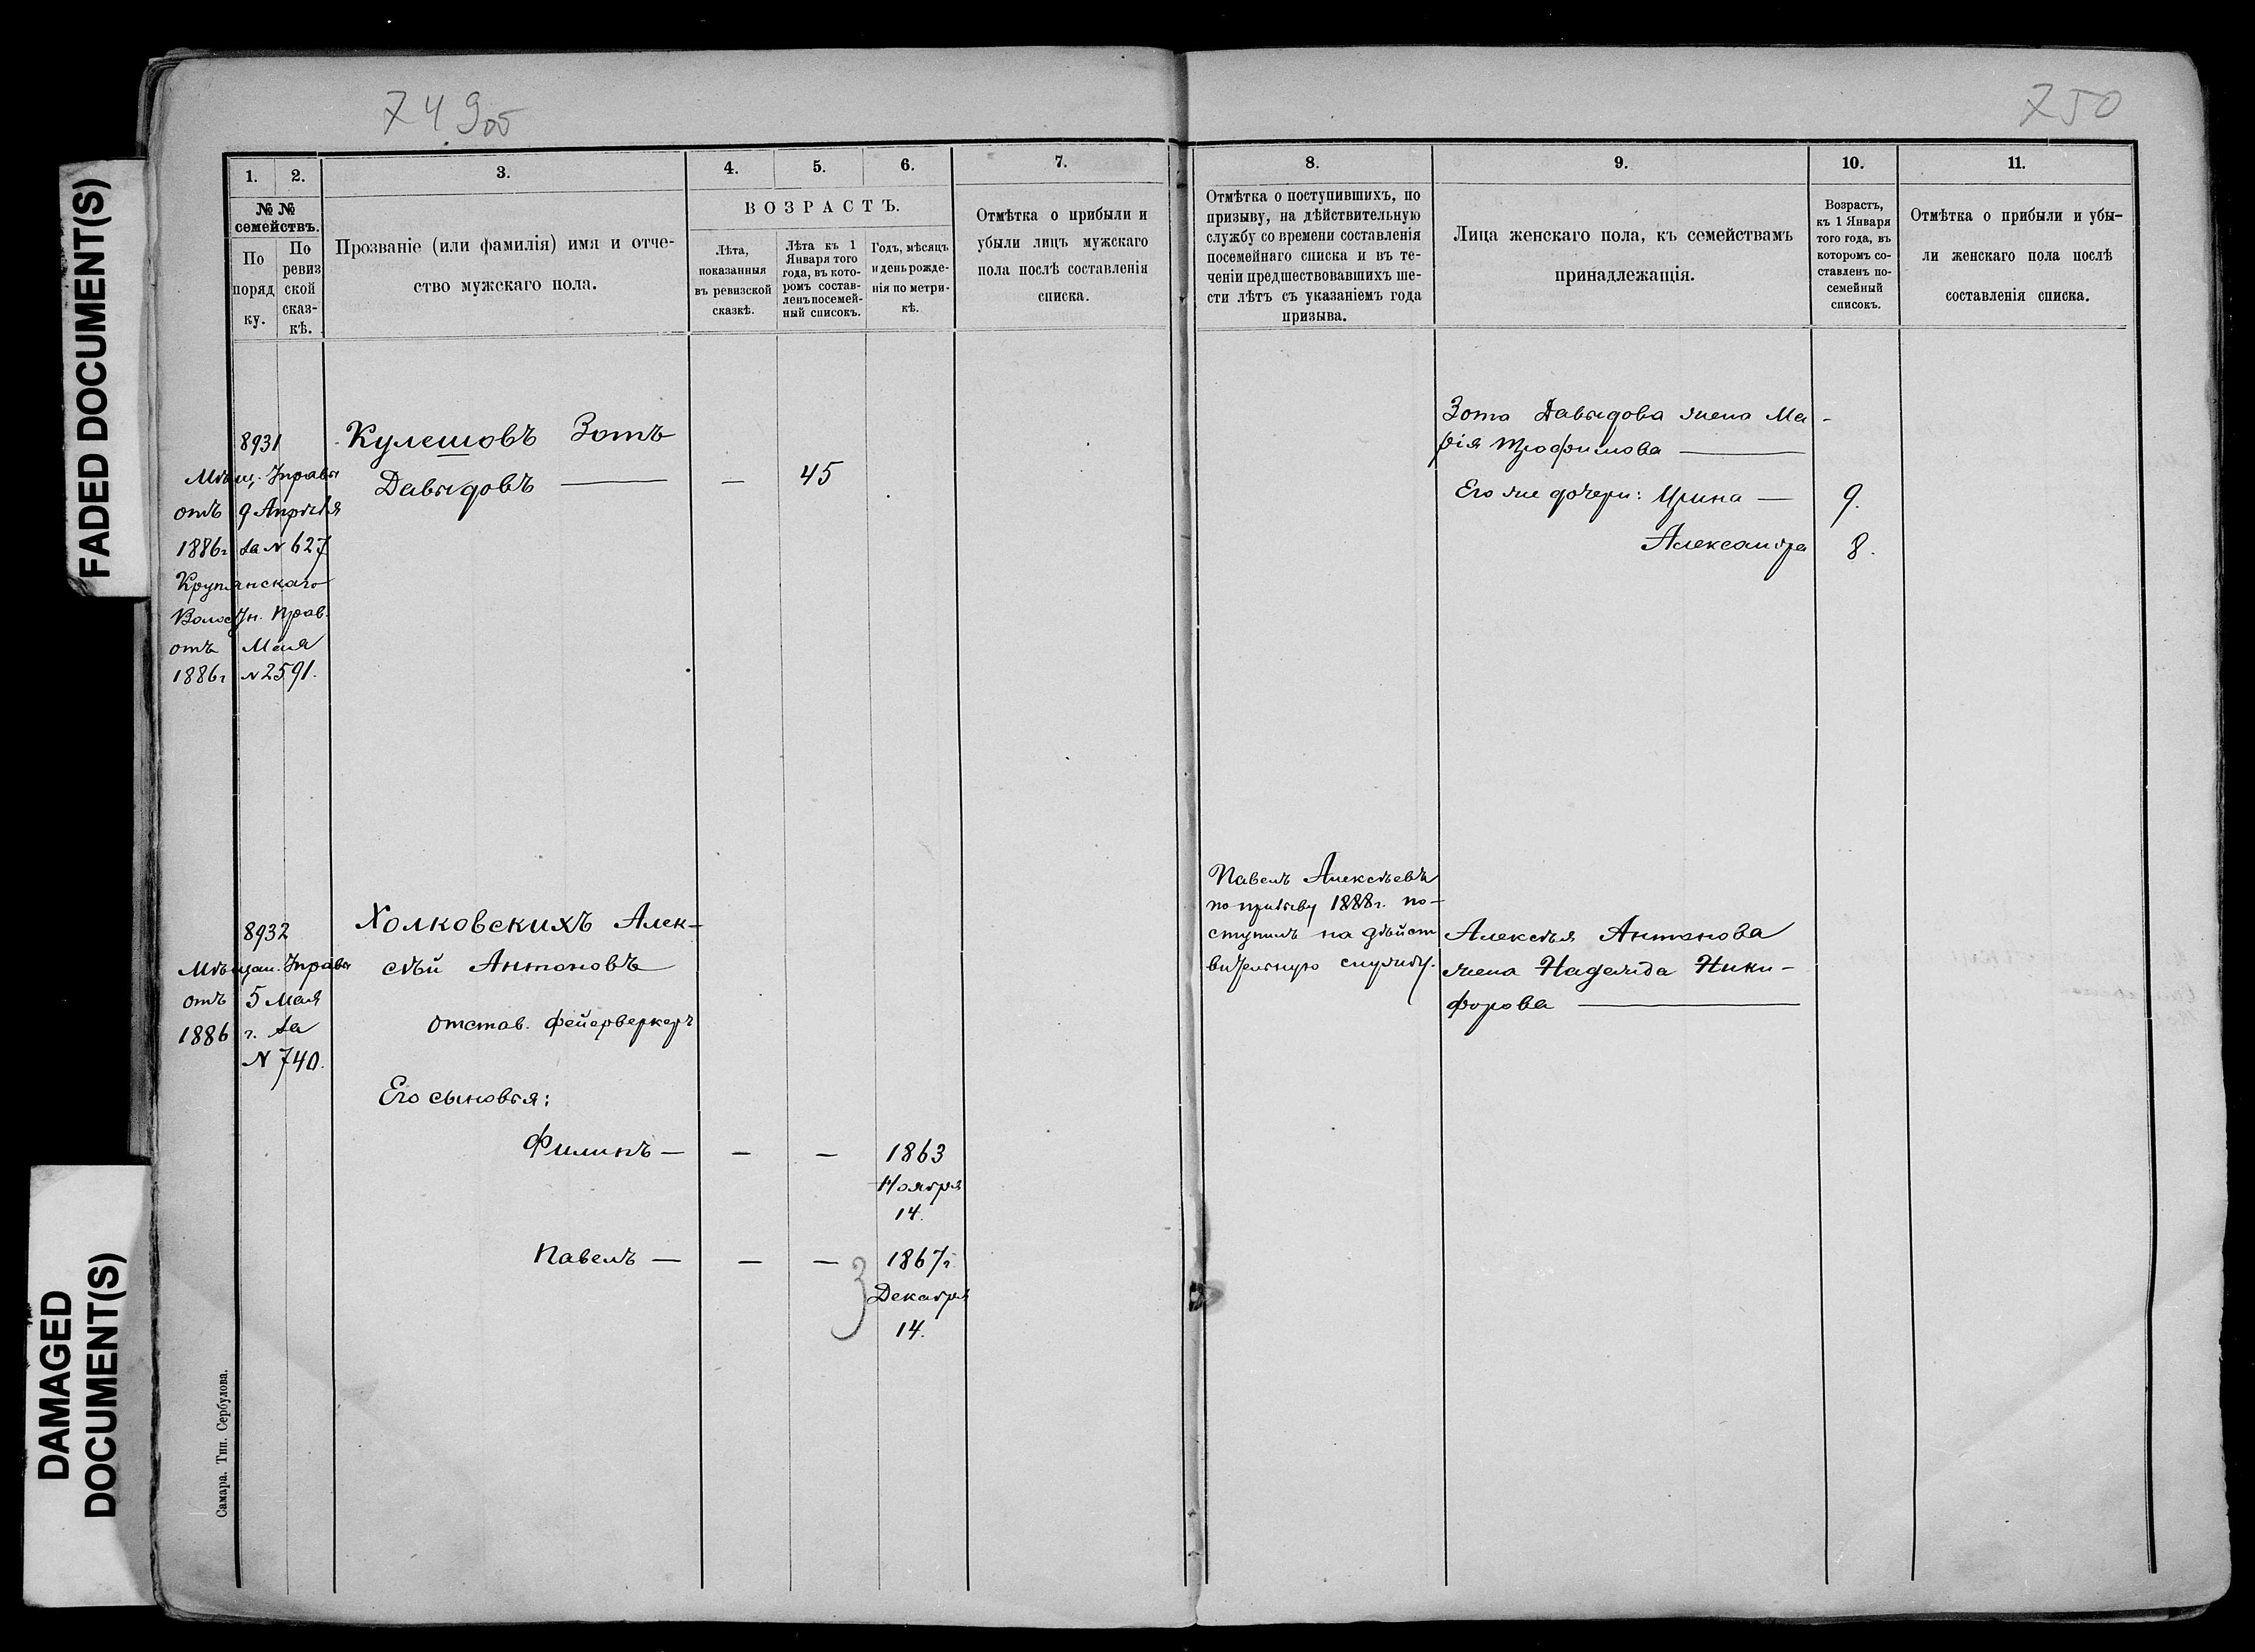 FADED DOCUMENT(S)
DAMAGED
DOCUMENT(S)
749об
750
1.
2.
3.
4.
5.
6.
7.
№ №
семействъ.
По
поряд
ку.
По
ревиз
ской
сказ-
кѣ.
Прозваніе (или фамилія) имя и отче-
ство мужскаго пола.
ВОЗРАСТЪ.
Лѣта,
показанныя
въ ревизской
сказкѣ.
Лѣта къ 1
Января того
года, въ кото-
ромъ состав-
ленъ посемей-
ный списокъ.
Годъ, мѣсяцъ
и день рожде-
нія по метри-
кѣ.
Отмѣтка о прибыли и
убыли лицъ мужскаго
пола послѣ составленія
списка.
8931
Мѣщ. Управы
отъ 9 Апрѣля
1886г за № 627
Крупянскаго
Волостн. Прав.
отъ Мая
1886г № 2591.
Кулешовъ Зотъ
Давыдовъ — — 45
8932
Мѣщан. Управы
отъ 5 Мая
1886 г. за
№ 740.
Холковскихъ Алек-
сѣй Антоновъ
отстав. фейерверкеръ
Его сыновья:
Филипъ — — — 1863
Ноября
14.
Павелъ — — — 1867г.
Декабря
14.
3
Самара. Тип. Сербулова.
8.
9.
10.
11.
Отмѣтка о поступившихъ, по
призыву, на дѣйствительную
службу со времени составленія
посемейнаго списка и въ те-
ченіи предшествовавшихъ ше-
сти лѣтъ съ указаніемъ года
призыва.
Лица женскаго пола, къ семействамъ
принадлежащія.
Возрастъ,
къ 1 Января
того года, въ
которомъ со-
ставленъ по-
семейный
списокъ.
Отмѣтка о прибыли и убы-
ли женскаго пола послѣ
составленія списка.
Зота Давыдова жена Ма-
рія Трофимова —
Его же дочери: Ирина — 9.
Александра 8.
Павелъ Алексѣевъ
по призыву 1888г. по-
ступилъ на дѣйст
вительную службу.
Алексѣя Антонова
жена Надежда Ники-
форова —